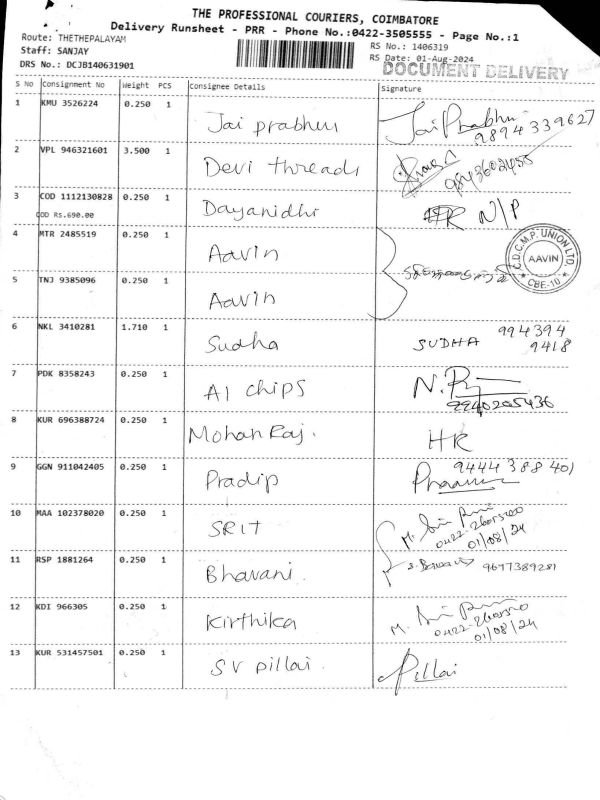 THE PROFESSIONAL COURIERS, COIMBATORE
Delivery Runsheet - PRR - Phone No.:0422-3505555 - Page No.:1
Route: THETHEPALAYAM
RS No.: 1406319
Staff: SANJAY
RS Date: 01-Aug-2024
DRS No.: DCJB140631901
DOCUMENT DELIVERY
S No Consignment No Weight PCS Consignee Details Signature
1 KMU 3526224 0.250 1 Jai prabhu Jai Prabhu
9894339627
2 VPL 946321601 3.500 1 Devi threads
9843602455
3 COD 1112130828 0.250 1 Dayanidhi N/P
COD RS.690.00
4 MTR 2485519 0.250 1 Aavin
C.D.C.M.P. UNION LTD.
AAVIN
CBE-10
5 TNJ 9385096 0.250 1 Aavin
6 NKL 3410281 1.710 1 Sudha SUDHA 994394
9418
7 PDK 8358243 0.250 1 A1 chips
9940205436
8 KUR 696388724 0.250 1 Mohan Raj. HR
9 GGN 911042405 0.250 1 Pradip 9444388401
10 MAA 102378020 0.250 1 SRIT
01/08/24
11 RSP 1881264 0.250 1 Bhavani. 9677389281
12 KDI 966305 0.250 1 Kirthika
01/08/24
13 KUR 531457501 0.250 1 SV pillai. Pillai